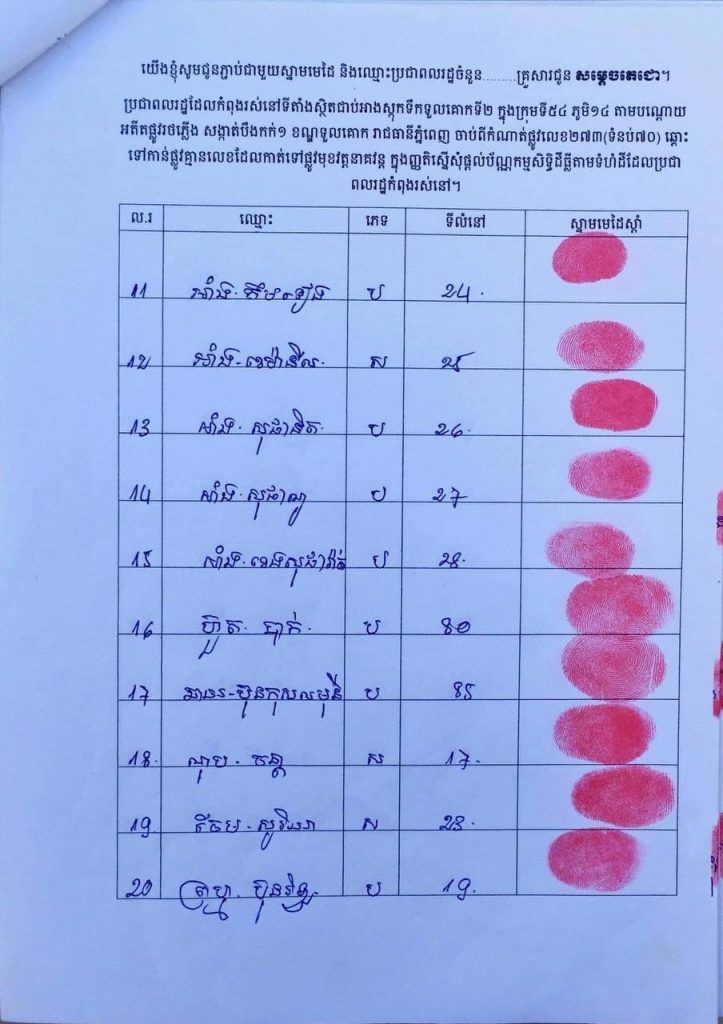 យើងខ្ញុំសូមជូនភ្ជាប់ជាមួយស្នាមមេដៃ និងឈ្មោះប្រជាពលរដ្ឋចំនួន........គ្រួសារជូន សម្តេចតេជោ។
ប្រជាពលរដ្ឋដែលកំពុងរស់នៅទីតាំងស្ថិតជាប់អាងស្តុកទឹកទួលគោកទី២ ក្នុងក្រុមទី៥៤ ភូមិ១៤ តាមបណ្តោយ
អតីតផ្លូវរថភ្លើង សង្កាត់បឹងកក់១ ខណ្ឌទួលគោក រាជធានីភ្នំពេញ ចាប់ពីកំណាត់ផ្លូវលេខ២៧៣(ទំនប់៧០) ឆ្ពោះ
ទៅកាន់ផ្លូវគ្មានលេខដែលកាត់ទៅផ្លូវមុខវត្តនាគវ័ន្ត ក្នុងញត្តិស្នើសុំផ្តល់ប័ណ្ណកម្មសិទ្ធិដីធ្លីតាមទំហំដីដែលប្រជា
ពលរដ្ឋកំពុងរស់នៅ។
ល.រ ឈ្មោះ ភេទ ទីលំនៅ ស្នាមមេដៃស្តាំ
11 អាំង. គឹម ប 24.
12 អាំង- ស 25
13 អាំង. សុផានិត. ប 26.
14 អាំង. ប 27
15 អាំង. ប 28.
16 ហ៊ួត. ប៉ាក់. ប 80
17 ប 85
18. ណុប. ចន្តា ស 17.
19. ស 23.
20 ប 19.